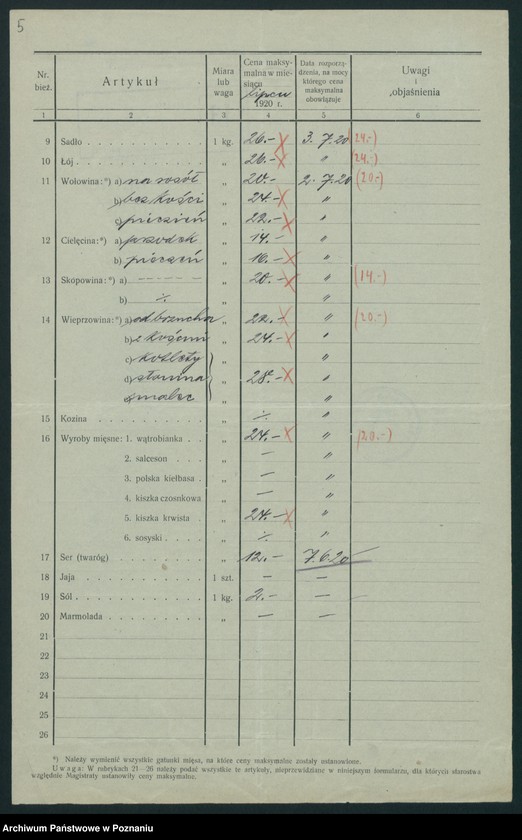 5
Nr. bież. Artykuł Miara lub waga Cena maksymalna w miesiącu lipcu 1920 r. Data rozporządzenia, na mocy którego cena maksymalna obowiązuje Uwagi i objaśnienia
1 2 3 4 5 6
9 Sadło 1 kg. 26.- 3. 7. 20 (24.-)
10 Łój „ 26.- „ (24.-)
11 Wołowina:*) a) na rosół „ 20.- 2. 7. 20 (20.-)
b) bez kości „ 24.- „
c) pieczeń „ 22.- „
12 Cielęcina:*) a) przodek „ 14.- „
b) pieczeń „ 16.- „
13 Skopowina:*) a) — „ 20.- „ (14.-)
b) ./. „ „
14 Wieprzowina:*) a) od brzucha „ 22.- „ (20.-)
b) z kośćmi „ 24.- „
c) kotlety „ „
d) słonina „ 28.- „
smalec „ „
15 Kozina „ ./. „
16 Wyroby mięsne: 1. wątrobianka „ 24.- „ (20.-)
2. salceson „ — „
3. polska kiełbasa „ — „
4. kiszka czosnkowa „ — „
5. kiszka krwista „ 24.- „
6. sosyski „ ./. „
17 Ser (twaróg) „ 12.- 7. 6. 20
18 Jaja 1 szt. — —
19 Sól 1 kg. 2.- —
20 Marmolada „ — —
21
22
23
24
25
26
*) Należy wymienić wszystkie gatunki mięsa, na które ceny maksymalne zostały ustanowione.
Uwaga: W rubrykach 21—26 należy podać wszystkie te artykuły, nieprzewidziane w niniejszym formularzu, dla których starostwa
względnie Magistraty ustanowiły ceny maksymalne.
Archiwum Państwowe w Poznaniu